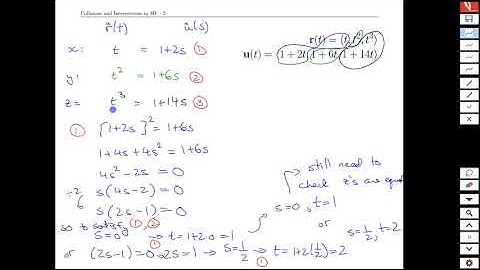 Collisions and Intersections in 3D - 2
r⃗(t) u⃗(s)
r(t) = (t, t², t³)
u(t) = (1 + 2t, 1 + 6t, 1 + 14t)
x: t = 1+2s ①
y: t² = 1+6s ②
z= t³ = 1+14s ③
① [1+2s]² = 1+6s
1+4s+4s² = 1+6s
4s² - 2s = 0
s(4s-2) = 0
s(2s-1) = 0
so to satisfy ①, ②
s=0 → t=1+2·0=1
①
or (2s-1)=0→2s=1 → s=1/2 → t=1+2(1/2)=2
①
still need to
check z's are equal
s=0, t=1
or
s=1/2, t=2